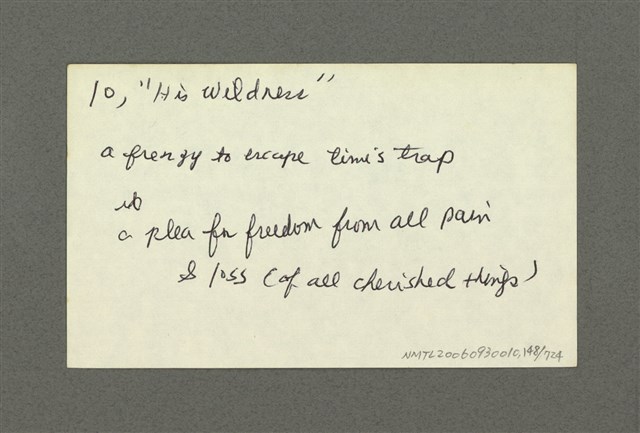 10, "His wildness"
a frenzy to escape time's trap
is
a plea for freedom from all pain
& loss (of all cherished things)
NMTL20060930010,148/724